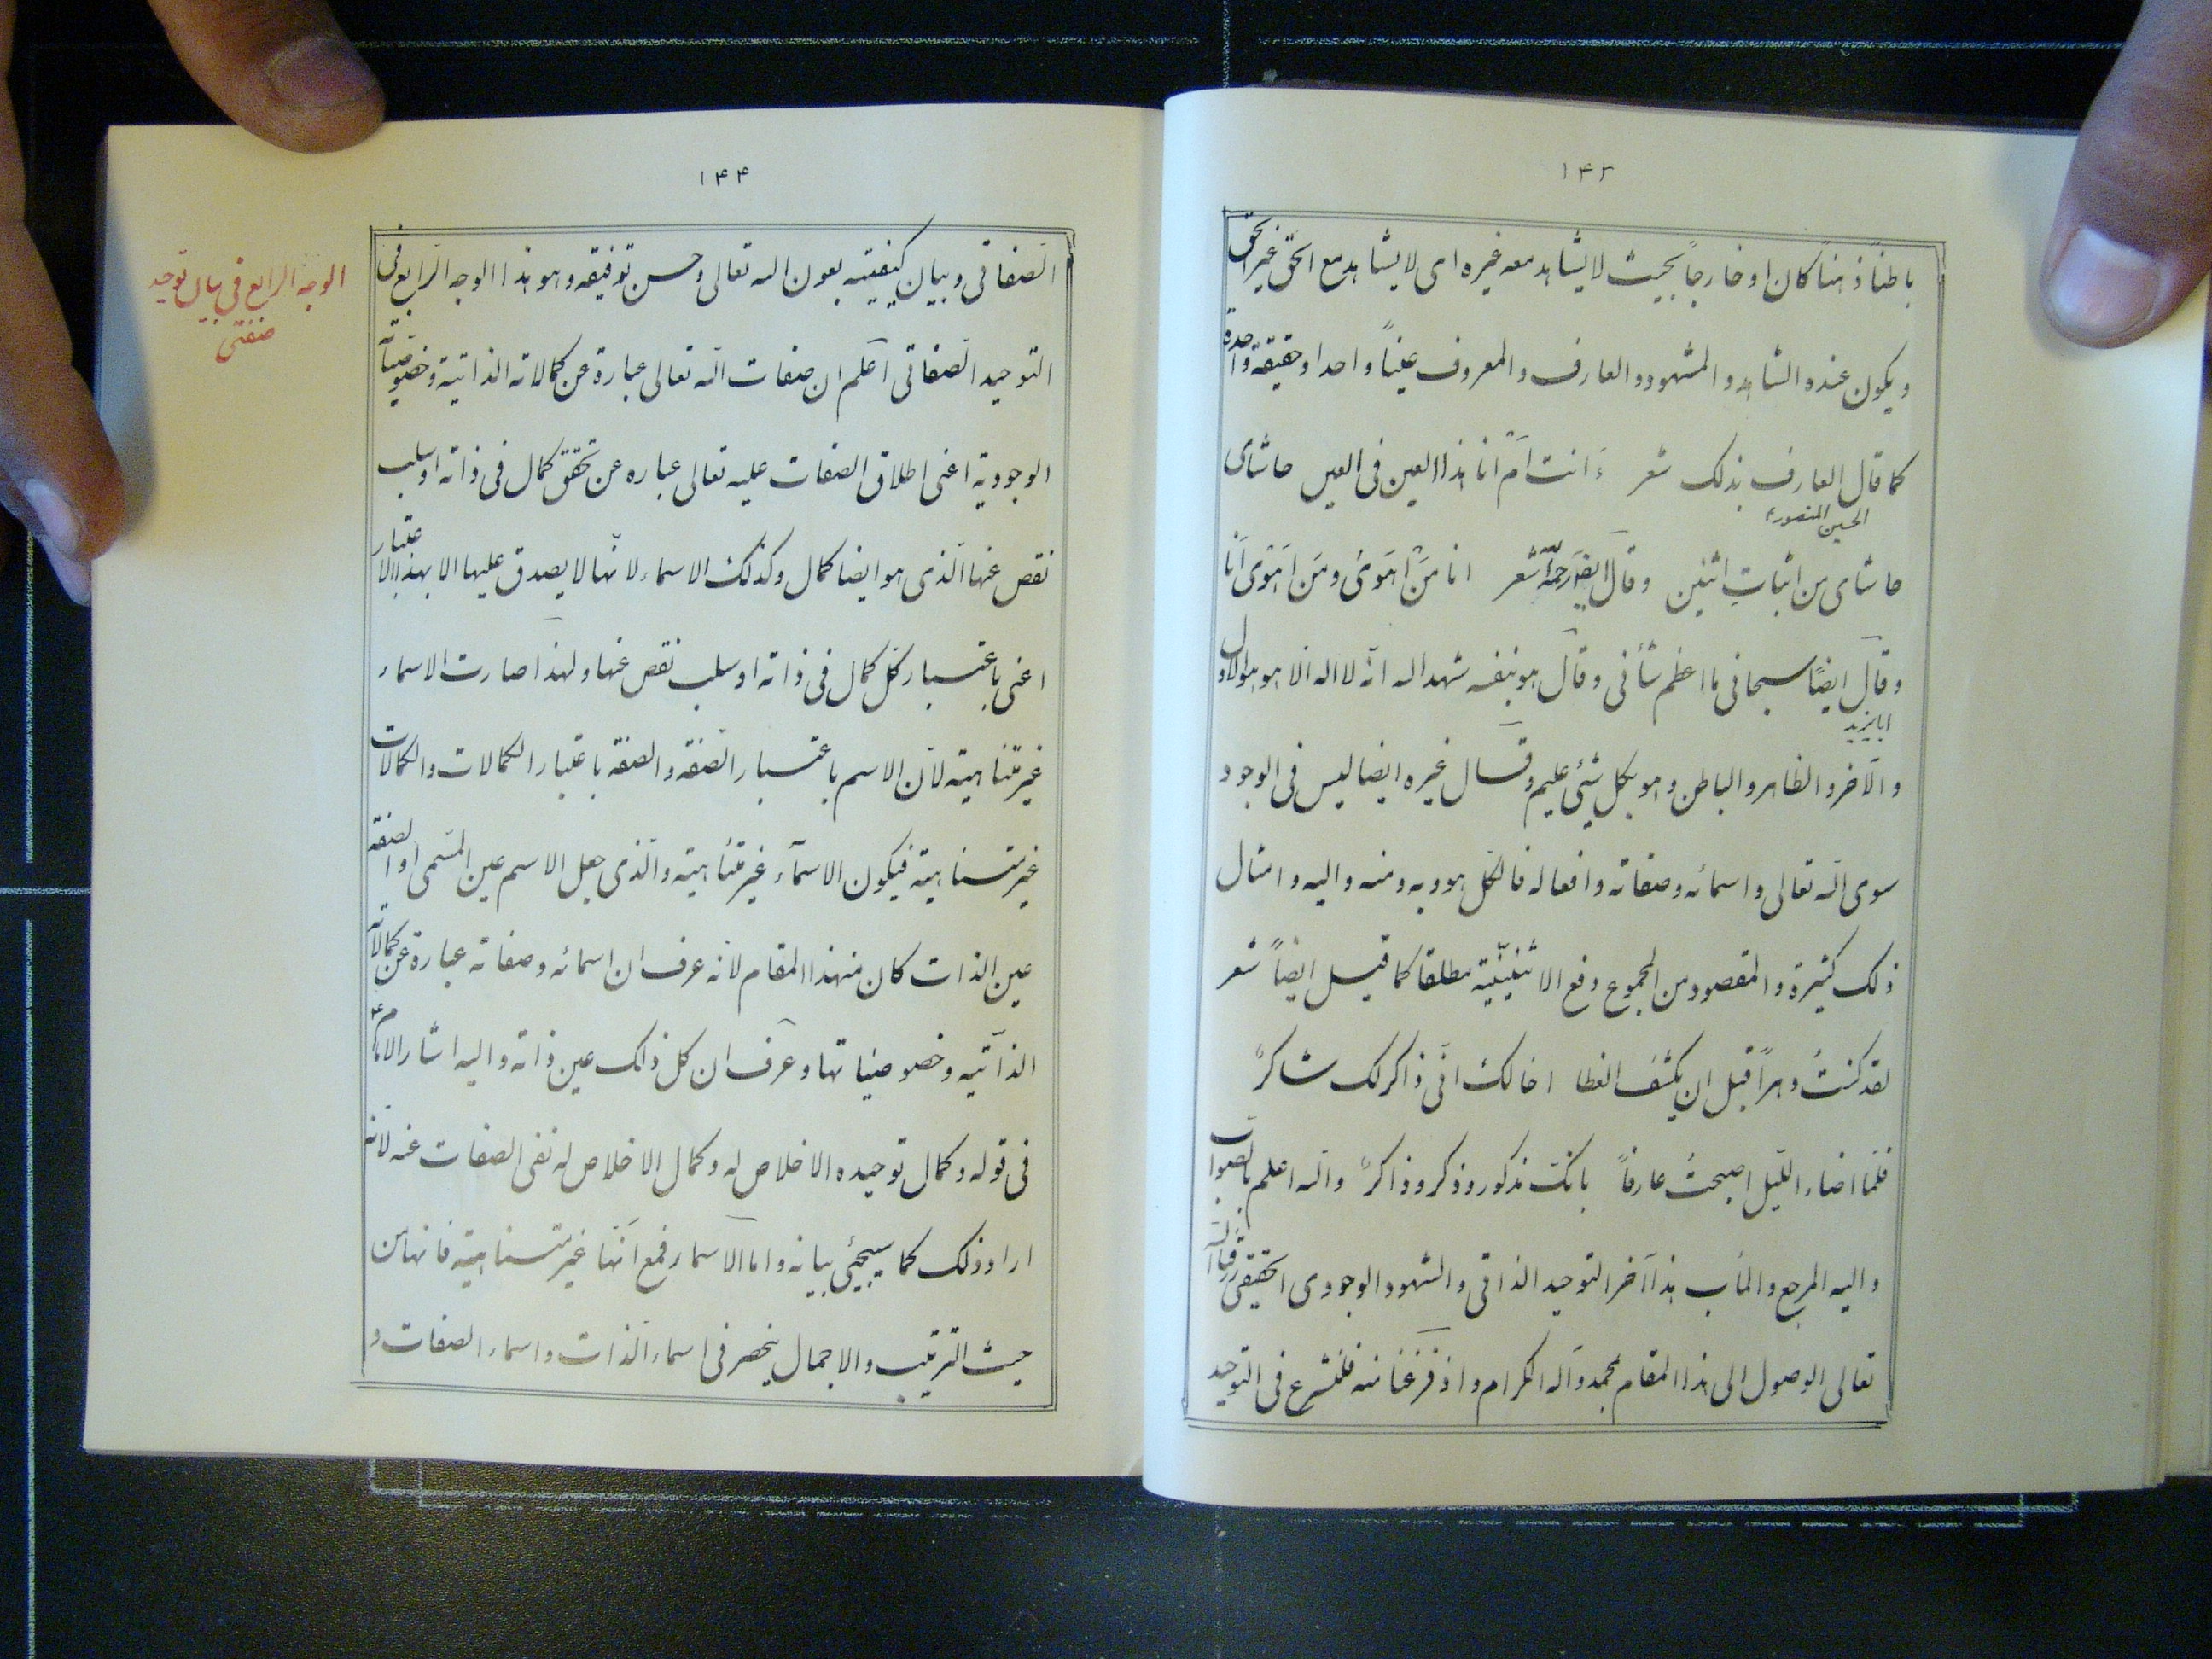 ۱۴۳
باطناً ذهناً كان او خارجاً بحيث لا يشاهد معه غيره اى لا يشاهد مع الحق غير الحق
ويكون عنده الشاهد و المشهود و العارف و المعروف عيناً واحدا و حقيقة واحدة
كما قال العارف بذلك شعر ءَانت اَمْ انا هذا العين فى العين حاشاى
الحسين المنصور
حاشاى من اثباتِ اثنين وقال ايضاً رحمه شعر انا مَنْ اَهَوىٰ ومَن اَهْوىٰ اَنا
وقال ايضاً سبحانى ما اعظم شأنى وقال هو بنفسه شهد الله انّه لا اله الا هو هو الاول
ابايزيد
و الآخر و الظاهر و الباطن و هو بكل شئى عليم و قال غيره ايضا ليس فى الوجود
سوى الله تعالى و اسمائه وصفاته و افعاله فالكل هو و به و منه و اليه و امثال
ذلك كثيرة و المقصود من المجموع رفع الاثنينيّة مطلقا كما قيل ايضاً شعر
لقد كنتُ دهراً قبل ان يكشف الغطا اخالك انى ذاكر لك شاكرً
فلما اضاء الليل اصبحتُ عارفاً بانك مذكور و ذكر و ذاكرً و الله اعلم بالصواب
و اليه المرجع و المآب هذا آخر التوحيد الذاتى و الشهود الوجودى الحقيقى رزقنا الله
تعالى الوصول الى هذا المقام بمحمد و آله الكرام و اذ فرغنا منه فلنشرع فى التوحيد
۱۴۴
الصفاتى و بيان كيفيته بعون الله تعالى و حسن توفيقه و هو هذا الوجه الرابع فى
الوجه الرابع فى بيان توحيد
صفتى
التوحيد الصفاتى اعلم ان صفات الله تعالى عبارة عن كمالاته الذاتية و خصوصياته
الوجودية اعنى اطلاق الصفات عليه تعالى عباره عن تحقق كمال فى ذاته او سلب
نقص عنها الذى هو ايضا كمال و كذلك الاسماء لانّها لا يصدق عليها الا بهذا الاعتبار
اعنى باعتبار كل كمال فى ذاته او سلب نقص عنها و لهذا صارت الاسماء
غير متناهيته لان الاسم باعتبار الصفه و الصفه باعتبار الكمالات و الكمالات
غير متناهية فيكون الاسمآء غير متناهيته و الذى جعل الاسم عين المسمى او الصفه
عين الذات كان منهذا المقام لانه عرف ان اسمائه و صفاته عبارة عن كمالاته
الذاتيه و خصوصياتها و عرف ان كل ذلك عين ذاته و اليه اشار الامام ع
فى قوله و كمال توحيده الاخلاص له و كمال الاخلاص له نفى الصفات عنه لانه
اراد ذلك كما سيجيئى بيانه و اما الاسماء فمع انها غير متناهية فانها من
حيث الترتيب و الاجمال ينحصر فى اسماء الذات و اسماء الصفات و